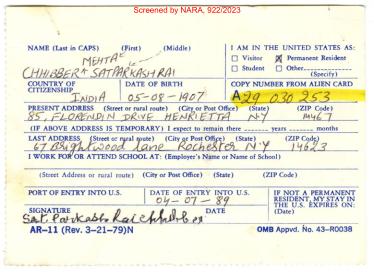 Screened by NARA, 922/2023
NAME (Last in CAPS) (First) (Middle)
MEHTA
CHHIBBER SATPARKASH RAI
I AM IN THE UNITED STATES AS:
Visitor Permanent Resident
Student Other
(Specify)
COUNTRY OF CITIZENSHIP DATE OF BIRTH COPY NUMBER FROM ALIEN CARD
INDIA 05-08-1907 A29 030 253
PRESENT ADDRESS (Street or rural route) (City or Post Office) (State) (ZIP Code)
85, FLORENDIN DRIVE HENRIETTA N.Y 14467
(IF ABOVE ADDRESS IS TEMPORARY) I expect to remain there years months
LAST ADDRESS (Street or rural route) (City or Post Office) (State) (ZIP Code)
67 Brightwood Lane Rochester N.Y 14623
I WORK FOR OR ATTEND SCHOOL AT: (Employer's Name or Name of School)
(Street Address or rural route) (City or Post Office) (State) (ZIP Code)
PORT OF ENTRY INTO U.S. DATE OF ENTRY INTO U.S. IF NOT A PERMANENT RESIDENT, MY STAY IN THE U.S. EXPIRES ON: (Date)
04-07-89
SIGNATURE DATE
Sat Parkash Rai Chhibber
AR-11 (Rev. 3-21-79)N OMB Appvd. No. 43-R0038